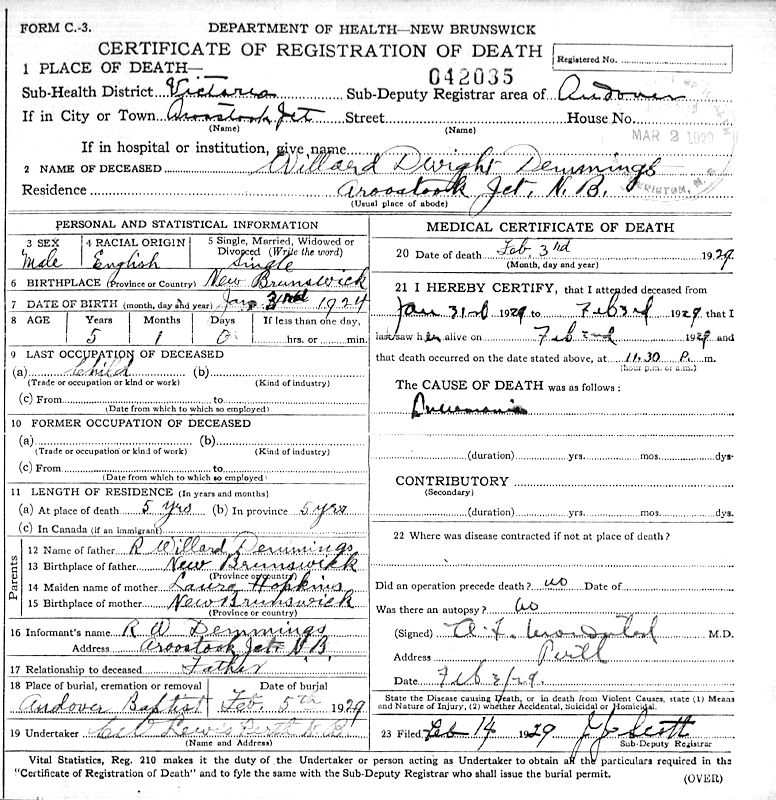 FORM C.-3. DEPARTMENT OF HEALTH—NEW BRUNSWICK
CERTIFICATE OF REGISTRATION OF DEATH
Registered No.
1 PLACE OF DEATH—
042035
Sub-Health District Victoria Sub-Deputy Registrar area of Andover
If in City or Town Aroostook Jct Street House No.
(Name) (Name)
MAR 2 1929
If in hospital or institution, give name
2 NAME OF DECEASED Willard Dwight Demmings
Residence Aroostook Jct. N. B.
(Usual place of abode)
PERSONAL AND STATISTICAL INFORMATION
3 SEX 4 RACIAL ORIGIN 5 Single, Married, Widowed or
Divorced (Write the word)
Male English Single
6 BIRTHPLACE (Province or Country) New Brunswick
7 DATE OF BIRTH (month, day and year) Jan 3rd 1924
8 AGE Years Months Days If less than one day,
5 1 0 hrs. or min.
9 LAST OCCUPATION OF DECEASED
(a) Child (b)
(Trade or occupation or kind or work) (Kind of industry)
(c) From to
(Date from which to which so employed)
10 FORMER OCCUPATION OF DECEASED
(a) (b)
(Trade or occupation or kind of work) (Kind of industry)
(c) From to
(Date from which to which so employed)
11 LENGTH OF RESIDENCE (In years and months)
(a) At place of death 5 yrs (b) In province 5 yrs
(c) In Canada (if an immigrant)
Parents
12 Name of father R Willard Demmings
13 Birthplace of father New Brunswick
(Province or country)
14 Maiden name of mother Laura Hopkins
15 Birthplace of mother New Brunswick
(Province or country)
16 Informant's name R W Demmings
Address Aroostook Jct. N B
17 Relationship to deceased Father
18 Place of burial, cremation or removal Date of burial
Andover Baptist Feb. 5th 1929
19 Undertaker Lewis Perth N. B.
(Name and Address)
MEDICAL CERTIFICATE OF DEATH
20 Date of death Feb. 3rd 1929
(Month, day and year)
21 I HEREBY CERTIFY, that I attended deceased from
Jan 31st 1929 to Feb 3rd 1929 that I
last saw h alive on Feb 2nd 1929 and
that death occurred on the date stated above, at 11.30 P. m.
(hour p.m. or a.m.)
The CAUSE OF DEATH was as follows:
Pneumonia
(duration) yrs. mos. dys.
CONTRIBUTORY
(Secondary)
(duration) yrs. mos. dys.
22 Where was disease contracted if not at place of death?
Did an operation precede death? no Date of
Was there an autopsy? no
(Signed) M.D.
Address Perth
Date Feb 3/29.
State the Disease causing Death, or in death from Violent Causes, state (1) Means
and Nature of Injury, (2) whether Accidental, Suicidal or Homicidal.
23 Filed Feb 14 1929 Scott
Sub-Deputy Registrar
Vital Statistics, Reg. 210 makes it the duty of the Undertaker or person acting as Undertaker to obtain all the particulars required in the
"Certificate of Registration of Death" and to fyle the same with the Sub-Deputy Registrar who shall issue the burial permit.
(OVER)